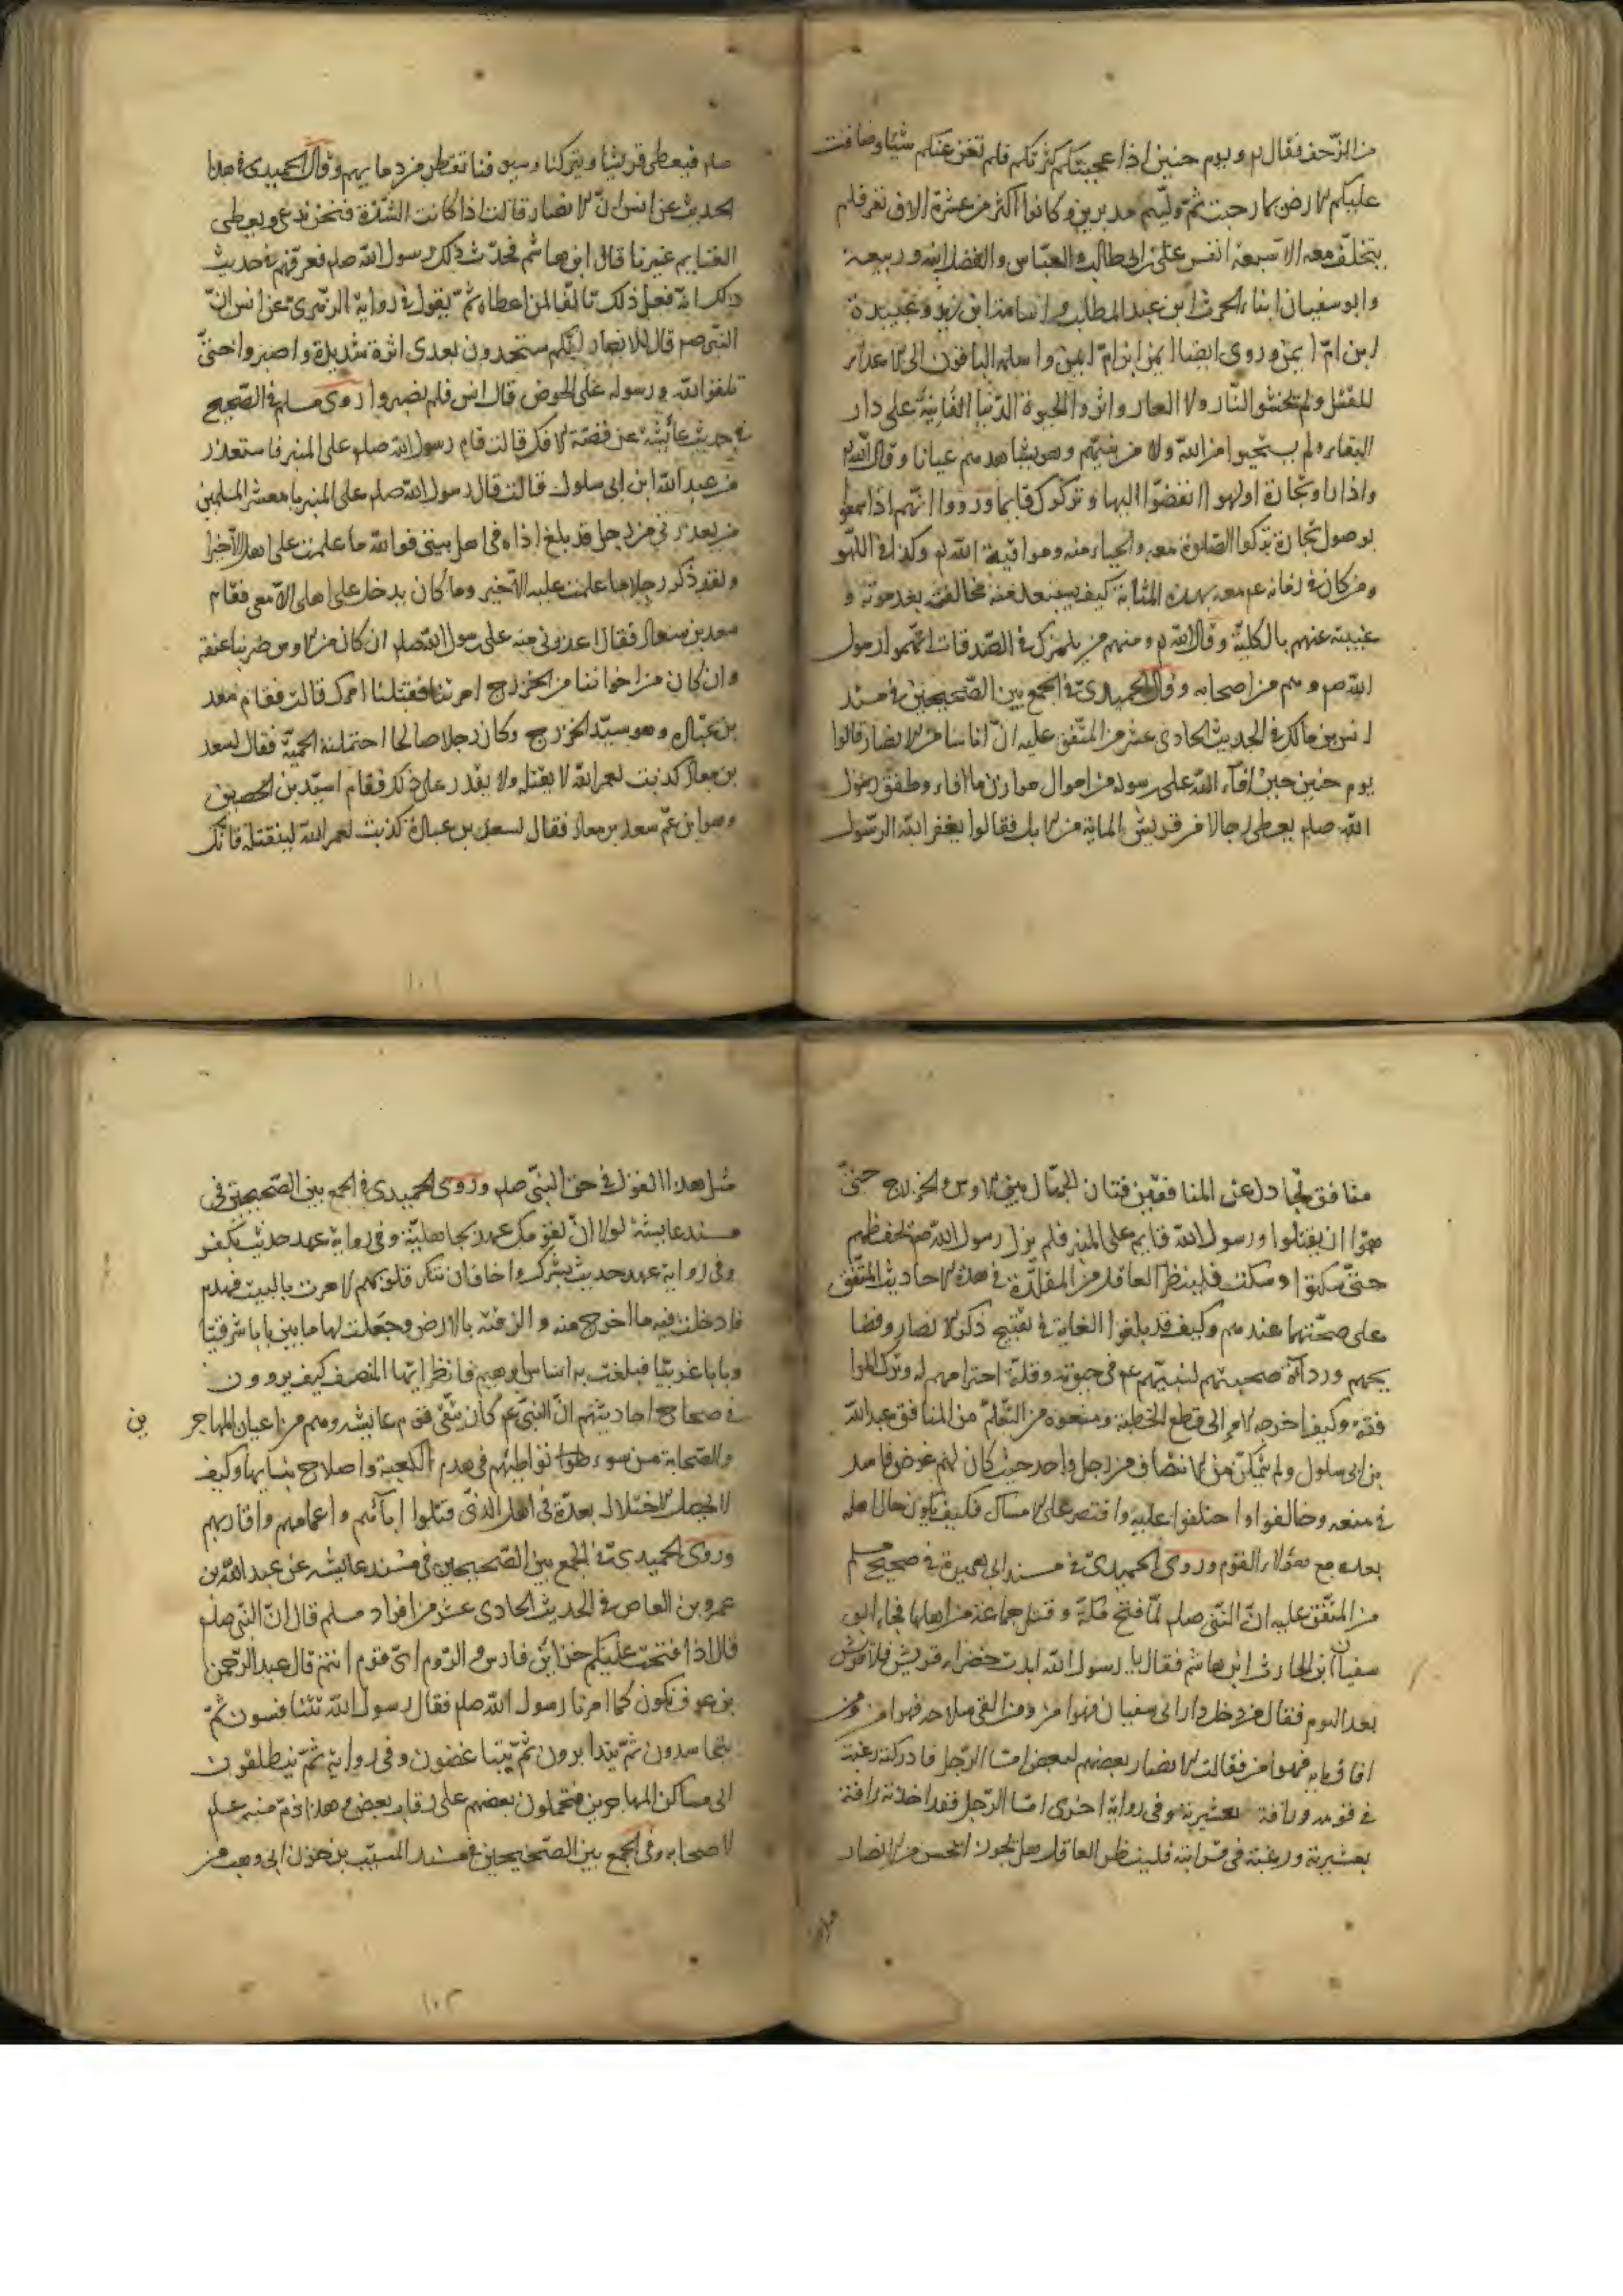 من الزحف فقال تم ويوم حنين اذا عجبتكم كثرتكم فلم تغن عنكم شيئا وضاقت
عليكم الارض بما رحبت ثم وليتم مدبرين وكانوا اكثر من عشرة الاف نفر فلم
يتخلف معه الا سبعة انفس علي بن ابي طالب والعباس والفضل ابنه وربيعة
وابو سفيان ابناء الحرث ابن عبد المطلب واسامة ابن زيد وعبيدة
ابن ام ايمن وروى ايضا ايمن ابن ام ايمن واسلمه الباقون الى الاعداء
للقتل ولم يخشوا النار ولا العار واثروا الحيوة الدنيا الفانية على دار
البقاء ولم يستحيوا من الله ولا من نبيهم وهو يشاهدهم عيانا وقال الله تم
واذا راو تجارة او لهوا انفضوا اليها وتركوك قايما ورووا انهم اذا سمعوا
بوصول تجارة تركوا الصلوة معه والحياء منه ومراقبة الله تم وكذا في اللهو
ومن كان في زمانه عم معه بهذه المثابة كيف يستبعد منه مخالفته بعد موته و
غيبته عنهم بالكلية وقال الله تم ومنهم من يلمزك في الصدقات اتهموا رسول
الله صم وهم من اصحابه وقال الحميدي في الجمع بين الصحيحين في مسند
انس بن مالك في الحديث الحادي عشر من المتفق عليه ان اناسا من الانصار قالوا
يوم حنين حين افاء الله على رسوله من اموال هوازن ما افاء وطفق رسول
الله صلم يعطي رجالا من قريش الماية من الابل فقالوا يغفر الله لرسول
صلم فيعطي قريشا ويتركنا وسيوفنا تقطر من دمايهم وقال الحميدي في هذا
الحديث عن انس ان الانصار قالت اذا كانت الشدة فنحن ندعى ويعطى
الغنايم غيرنا قال ابن هاشم فحدث ذلك رسول الله صلم فعرفهم في حديث
ذلك انه فعل ذلك تالفا لمن اعطاه ثم يقول في رواية الزهري عن انس ان
النبي صم قال للانصار انكم ستجدون بعدي اثرة شديدة واصبروا حتى
تلقوا الله ورسوله على الحوض قال انس فلم نصبر وروى مسلم في الصحيح
في حديث عائشة عن قصة الافك قالت قام رسول الله صلم على المنبر فاستعذر
من عبد الله ابن ابي سلول قالت قال رسول الله صلم على المنبر يا معشر المسلمين
من يعذرني من رجل قد بلغ اذاه في اهل بيتي فوالله ما علمت على اهلي الا خيرا
ولقد ذكر رجلا ما علمت عليه الا خير وما كان يدخل على اهلي الا معي فقام
سعد بن معاذ فقال اعذرني منه على رسول الله صلم ان كان من الاوس ضربنا عنقه
وان كان من اخواننا من الخزرج امرتنا فقتلنا امرك قالت فقام سعد
بن عبادة وهو سيد الخزرج وكان رجلا صالحا احتملته الحمية فقال لسعد
بن معاذ كذبت لعمر الله لا يقتله ولا يقدر على ذلك فقام اسيد بن الحصين
وهو ابن عم سعد بن معاذ فقال لسعد بن عبادة كذبت لعمر الله لنقتلنه فانك
منافق تجادل عن المنافقين فتان الجهال بين الاوس والخزرج حتى
هموا ان يقتلوا ورسول الله قايم على المنبر فلم يزل رسول الله صم يخفظهم
حتى سكتوا وسكت فلينظر العاقل من المقلدة في هذه الاحاديث المتفق
على صحتهما عندهم وكيف قد بلغوا الغاية في تقبيح ذكر الانصار وفضا
يحهم ورداءة صحبتهم لنبيهم عم في حيوته وقلة احترامهم له وترك الموا
فقة وكيف اخرجه الامر الى قطع الخطبة ومنعوه من التظلم من المنافق عبد الله
بن ابي سلول ولم يتمكن من الانتصاف من رجل واحد حيث كان لهم غرض فاسد
في منعه وخالفوا واختلفوا عليه واقتصر على الامساك فكيف يكون حال اهله
بعده مع هؤلاء القوم وروى الحميدي في مسند ابي هريرة في صحيح مسلم
من المتفق عليه ان النبي صلم لما فتح مكة وقتل جماعة من اهلها فجاء ابو
سفيان ابن الحارث ابن هاشم فقال يا رسول الله ابدت خضراء قريش فلا قريش
بعد اليوم فقال من دخل دار ابي سفيان فهو امن ومن القى سلاحه فهو امن ومن
اغلق بابه فهو امن فقالت الانصار بعضهم لبعض اما الرجل فادركته رغبة
في قومه ورافة بعشيرته وفي رواية اخرى اما الرجل فقد اخذته رافة
بعشيرته ورغبة في قرابته فلينظر العاقل هل يجوز التحسن من الانصار
مثل هذا القول في حق النبي صلم وروى الحميدي في الجمع بين الصحيحين في
مسند عايشة لولا ان قومك عهد بجاهلية وفي رواية عهد حديث بكفر
وفي رواية عهد حديث بشرك واخاف ان تنكر قلوبهم لامرت بالبيت فهدم
فادخلت فيه ما اخرج منه والزقته بالارض وجعلت لها ما بين بابا شرقيا
وبابا غربيا فبلغت به اساس ابرهيم فانظر ايها المنصف كيف يروون
في صحاح احاديثهم ان النبي عم كان يتقي قوم عايشه وهم من اعيان المهاجرين
والصحابة من سوء تواطيهم في هدم الكعبة واصلاح بنايها وكيف
لا يحصل الاختلال بعده في اهله الذي قتلوا ابائهم واعمامهم واقاربهم
وروى الحميدي في الجمع بين الصحيحين في مسند عايشه عن عبد الله بن
عمرو بن العاص في الحديث الحادي عشر من افراد مسلم قال ان النبي صلم
قال اذا فتحت عليكم خزاين فارس والروم اي قوم انتم قال عبد الرحمن
بن عوف نكون كما امرنا رسول الله صلم فقال رسول الله تتنافسون ثم
يتحاسدون ثم يتدابرون ثم يتباغضون وفي رواية ثم ينطلقون
الى مساكن المهاجرين فتحملون بعضهم على رقاب بعض وهذا ذم منه عليه
لاصحابه وفي الجمع بين الصحيحين في مسند المسيب بن حزن ابن ابي وهب من